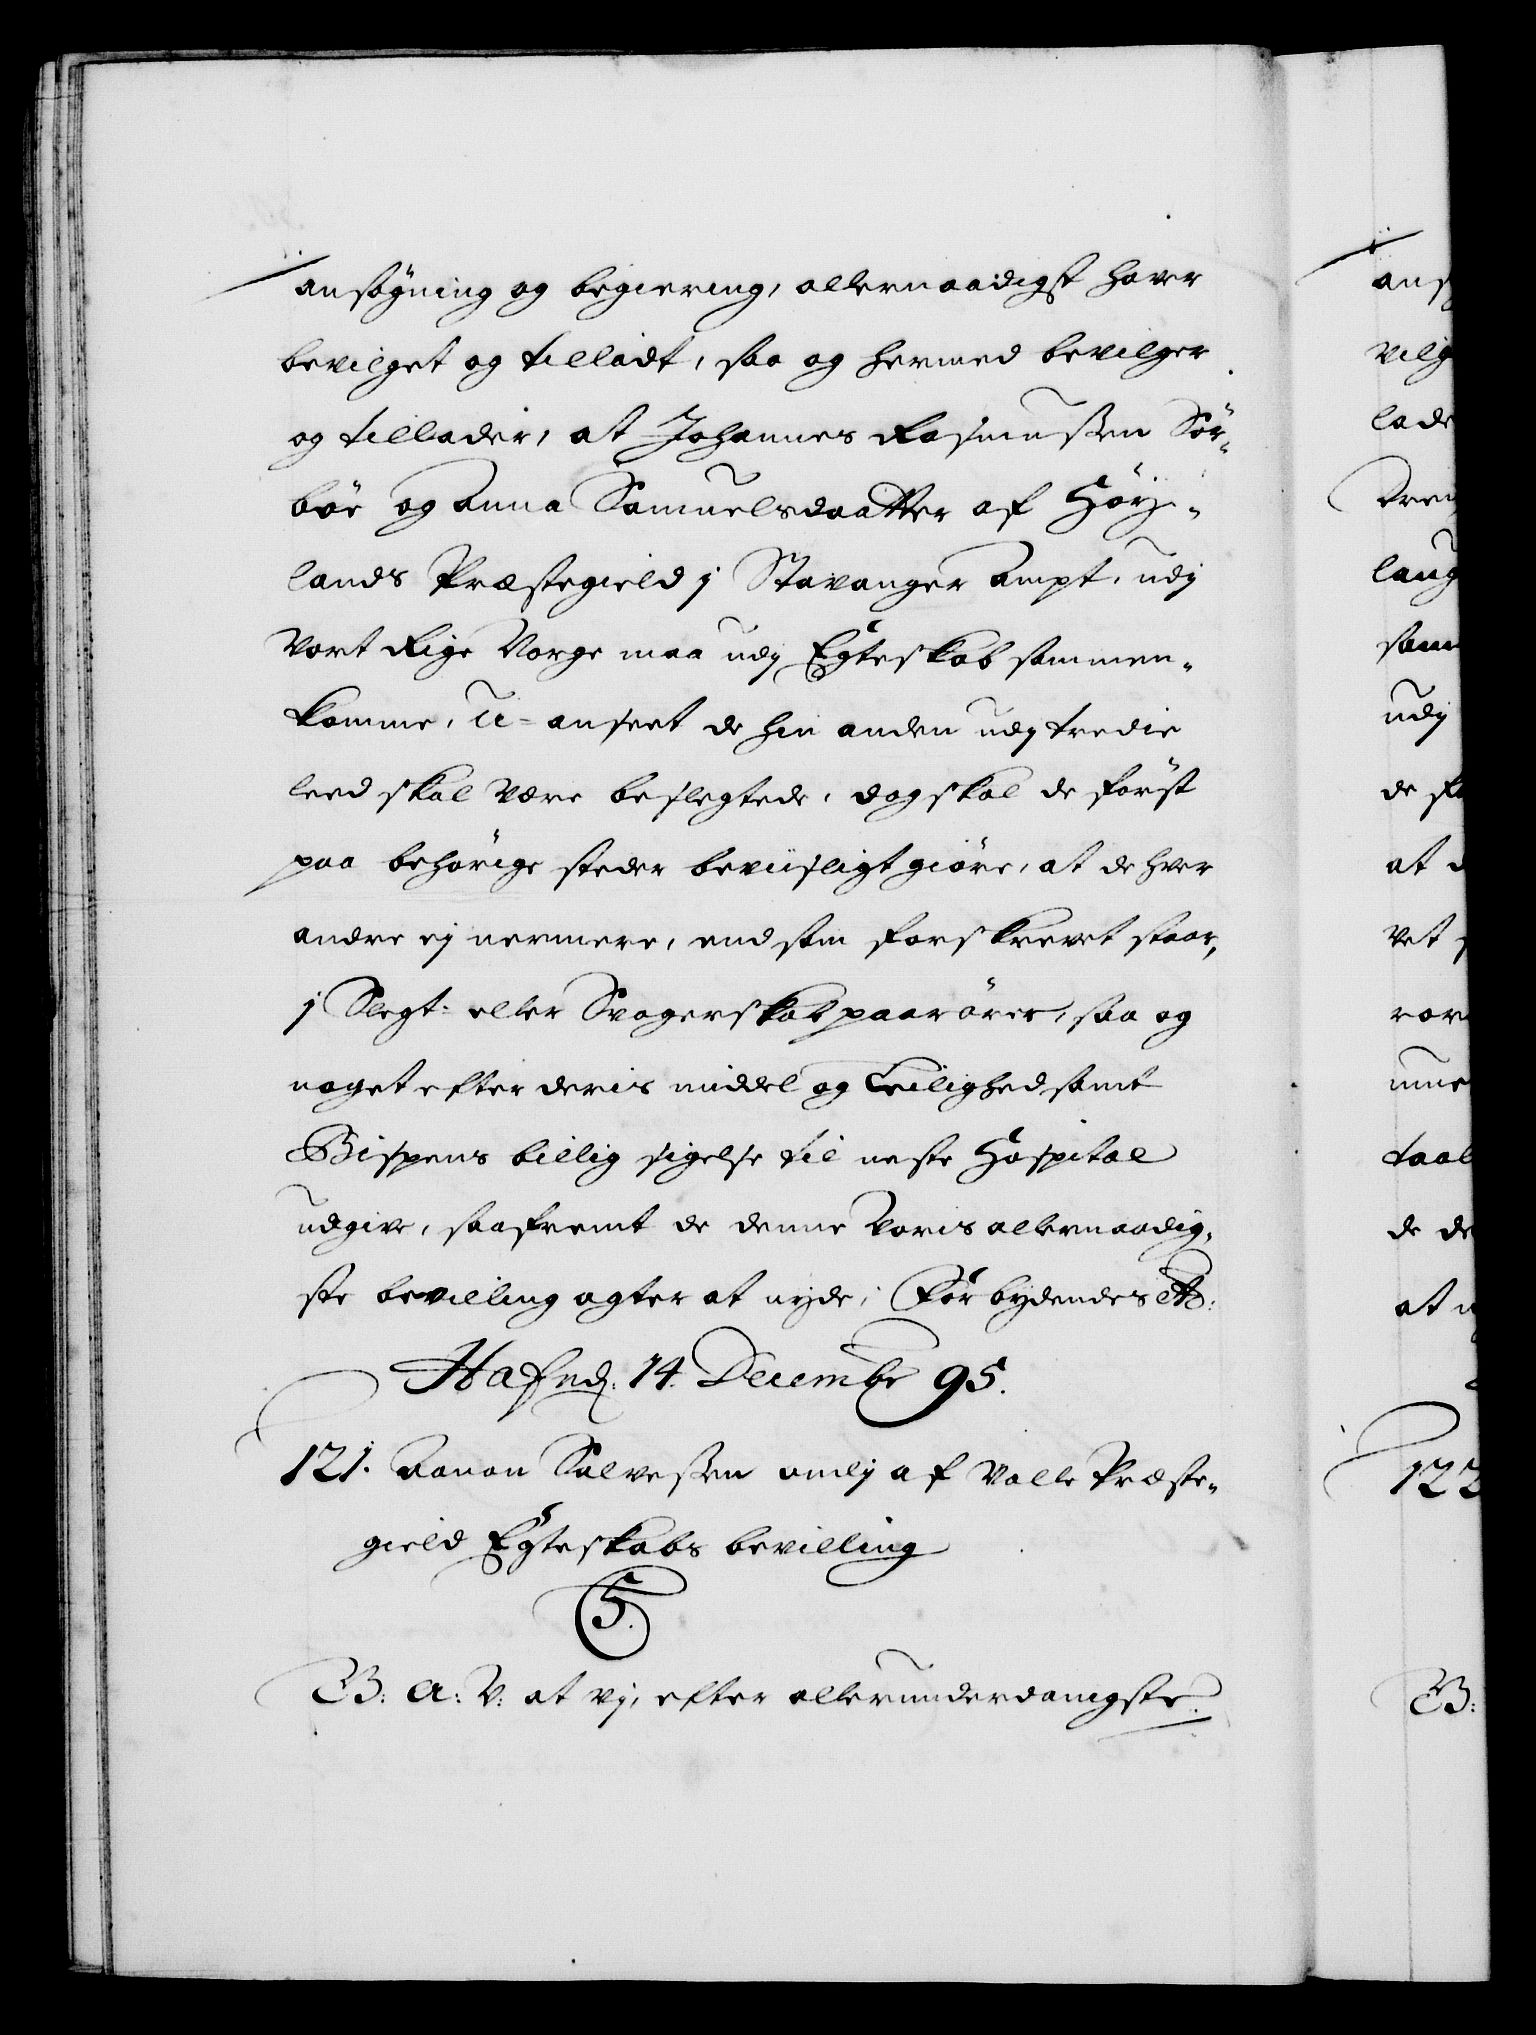 ansøgning og begiering, allernaadigst haver
bevilget og tilladt, saa og hermed bevilger
og tillader, at Johannes Rasmussen Sør-
bøe og Anna Samuelsdaatter af Høye-
lands Præstegield j Stavanger Ampt, udj
Vort Rige Norge maa udj Egteskab sammen-
komme, U-anseet de hin anden udj tredie
leed skal være beslegtede, dog skal de først
paa behørige steder bevisligt giøre, at de hver
andre ej nermere, end som forskrevet staar,
j Slegt: eller Svogerskab paarører, saa og
noget efter deris middel og Leilighed samt
Bispens billig sigelse til neste Hospital
udgive, saafremt de denne Voris allernaadig-
ste bevilling agter at nyde, Forbydendes etc:
Hafn: 14. Decembr 95.
121. Aanon Salvessen omlj af Valle Præste-
gield Egteskabs bevilling
5.
G: A: V: at vj, efter allerunderdanigste
ans
vilg
lade
laug
sam
udj
de f
at d
vet s
rør
taal
de de
at n
122
G: